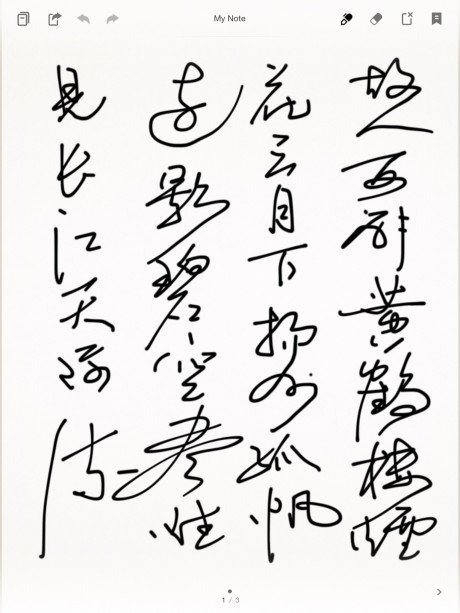 My Note
故人西辞黄鹤楼煙
花三月下扬州孤帆
远影碧空尽惟
見长江天际流
1 / 3